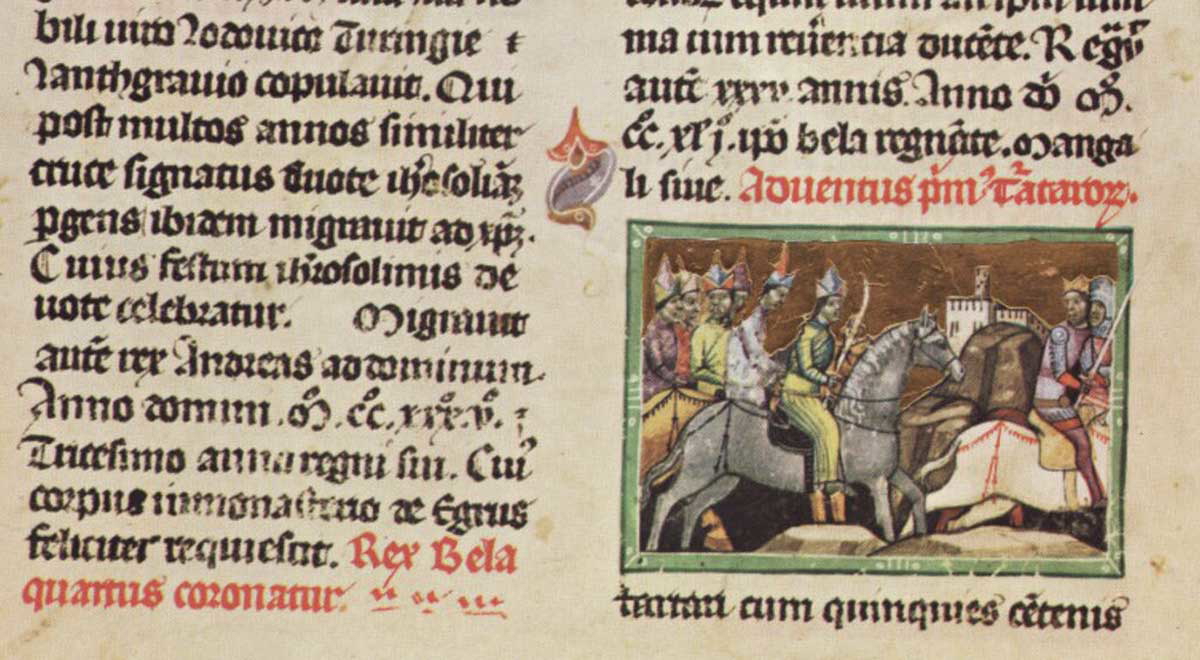 bili uiro Lodouico Turingie ⁊
lanthgrauio copulauit. Qui
post multos annos similiter
cruce signatus duote ihrosolīaꝫ
ꝑgens ibidem migrauit ad xp̄ꝫ.
Cuius festum ihrosolimis de
uote celebratur. Migrauit
autē rex Andreas ad dominum.
Anno domini. M̊. C̊C. xxx̊. v̊. ⁊
Tricesimo anno regni sui. Cuiꝰ
corpus in monasterio de Egrus
feliciter requiescit. Rex Bela
quartus coronatur.
ma cum reuerencia ducēte. Regͣuͭ
autē xxxv annis. Anno dō M̊.
C̊C. xl̊j. ip̄o bela regnāte. Manga
li siue. Aduentus p̄mꝰ Tātaroꝝ.
tartari cum quinquies cētenis